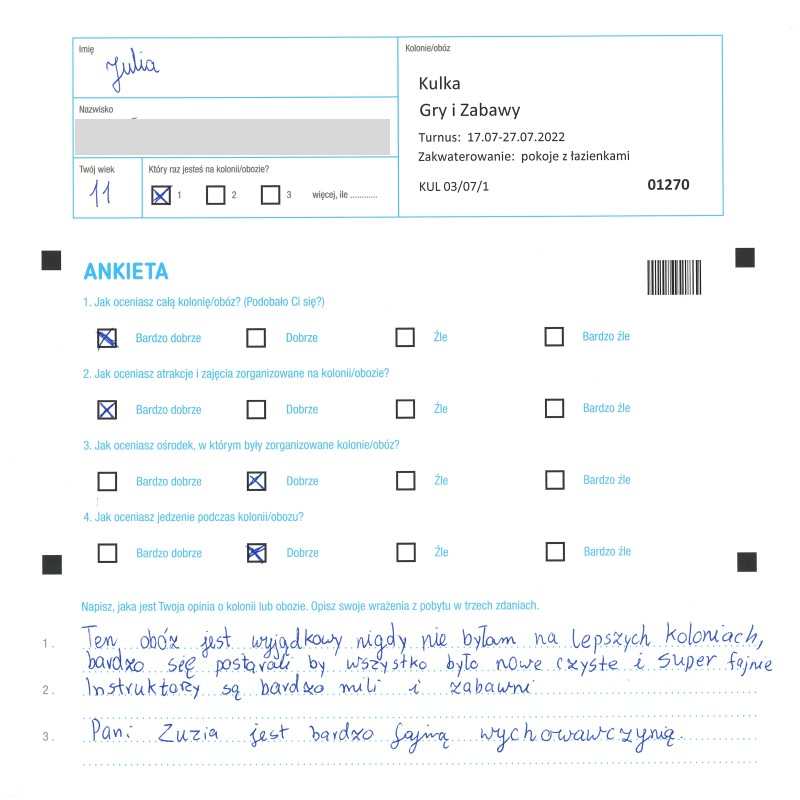 Imię
Julia
Nazwisko
Twój wiek
11
Który raz jesteś na kolonii/obozie?
1 2 3 więcej, ile ............
Kolonie/obóz
Kulka
Gry i Zabawy
Turnus: 17.07-27.07.2022
Zakwaterowanie: pokoje z łazienkami
KUL 03/07/1 01270
ANKIETA
1. Jak oceniasz całą kolonię/obóz? (Podobało Ci się?)
Bardzo dobrze Dobrze Źle Bardzo źle
2. Jak oceniasz atrakcje i zajęcia zorganizowane na kolonii/obozie?
Bardzo dobrze Dobrze Źle Bardzo źle
3. Jak oceniasz ośrodek, w którym były zorganizowane kolonie/obóz?
Bardzo dobrze Dobrze Źle Bardzo źle
4. Jak oceniasz jedzenie podczas kolonii/obozu?
Bardzo dobrze Dobrze Źle Bardzo źle
Napisz, jaka jest Twoja opinia o kolonii lub obozie. Opisz swoje wrażenia z pobytu w trzech zdaniach.
1. Ten obóz jest wyjądkowy nigdy nie byłam na lepszych koloniach,
bardzo się postarali by wszystko było nowe czyste i super fajnie
2. Instruktorzy są bardzo mili i zabawni
3. Pani Zuzia jest bardzo fajną wychowawczynią.